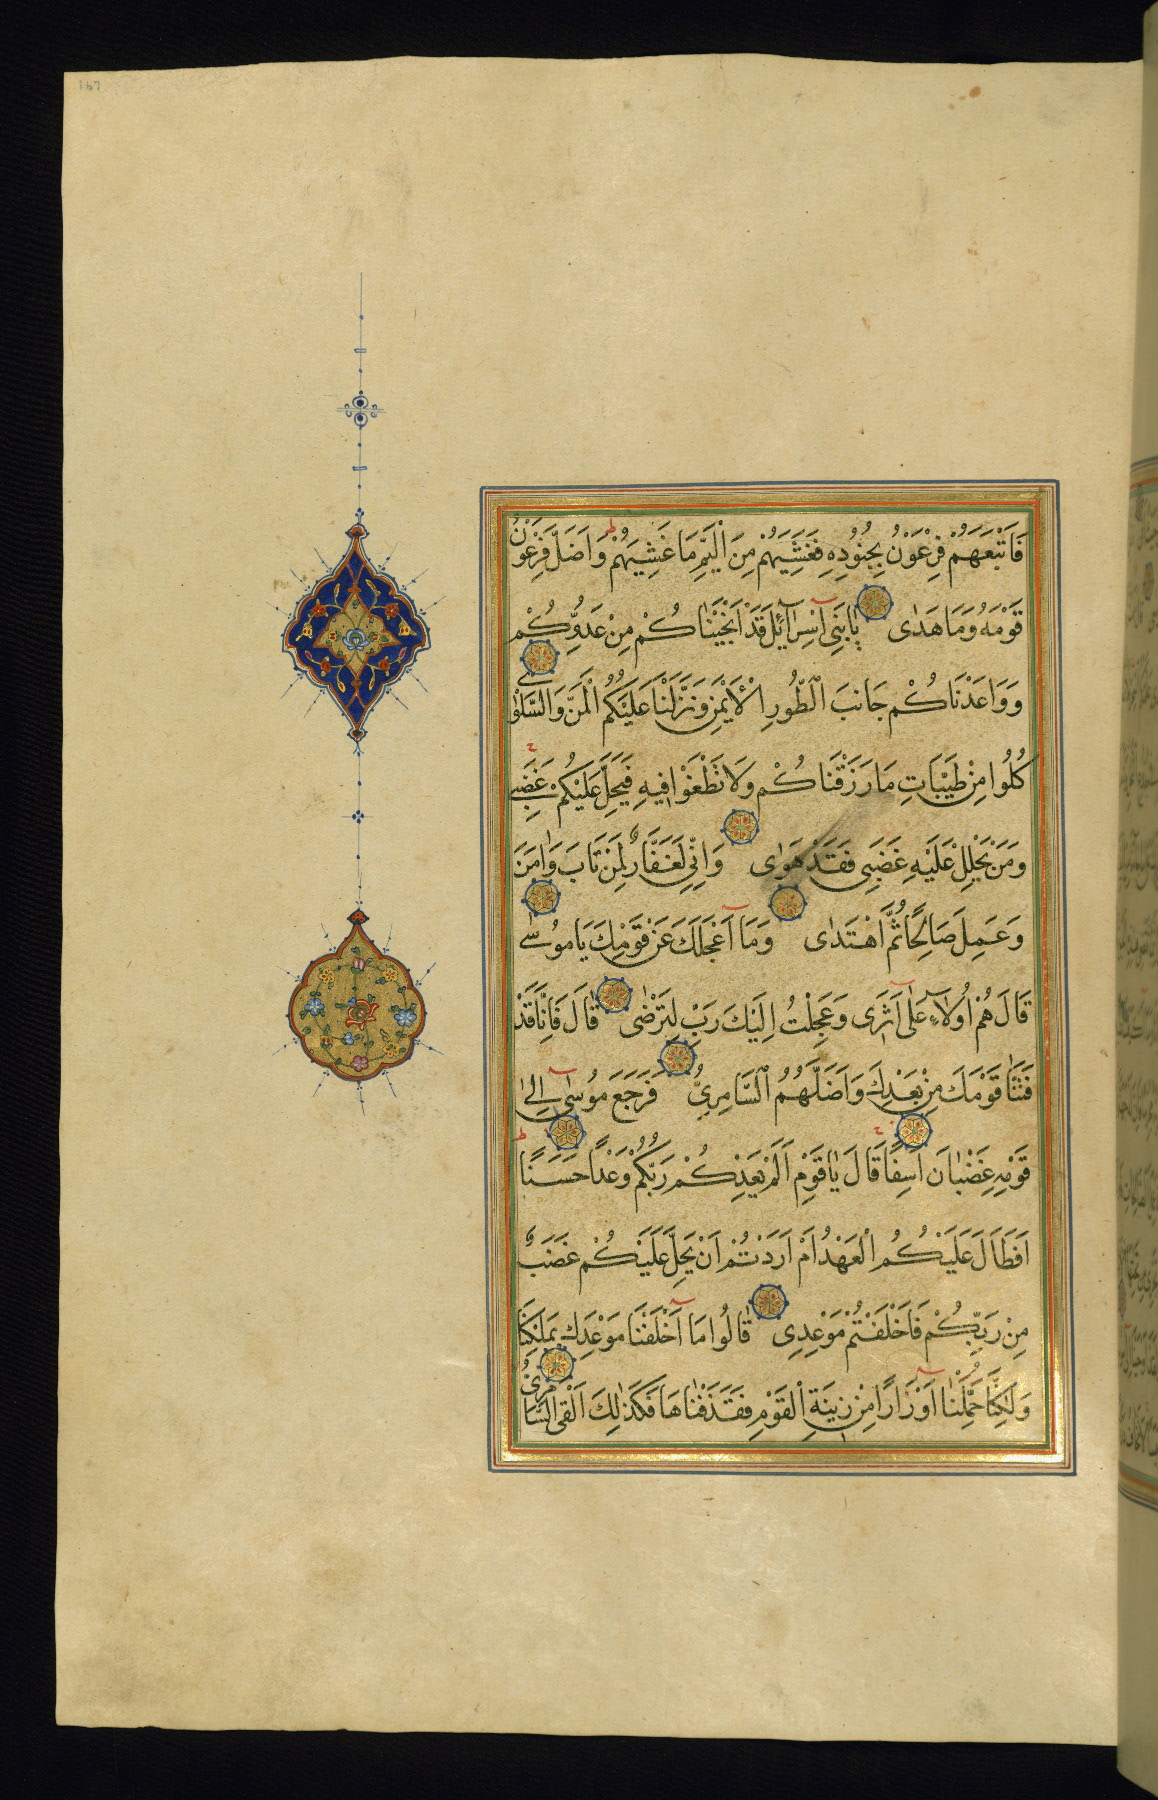 فَاَتْبَعَهُمْ فِرْعَوْنُ بِجُنُودِهِ فَغَشِيَهُمْ مِنَ الْيَمِّ مَا غَشِيَهُمْ وَاَضَلَّ فِرْعَوْنُ
قَوْمَهُ وَمَا هَدٰى يَابَنِى اِسْرَآئِلَ قَدْ اَنْجَيْنَاكُمْ مِنْ عَدُوِّكُمْ
وَوَاعَدْنَاكُمْ جَانِبَ الطُّورِ الْاَيْمَنَ وَنَزَّلْنَا عَلَيْكُمُ الْمَنَّ وَالسَّلْوٰى
كُلُوا مِنْ طَيِّبَاتِ مَا رَزَقْنَاكُمْ وَلَا تَطْغَوْا فِيهِ فَيَحِلَّ عَلَيْكُمْ غَضَبِى
وَمَنْ يَحْلِلْ عَلَيْهِ غَضَبِى فَقَدْ هَوٰى وَاِنِّى لَغَفَّارٌ لِمَنْ تَابَ وَاٰمَنَ
وَعَمِلَ صَالِحًا ثُمَّ اهْتَدٰى وَمَآ اَعْجَلَكَ عَنْ قَوْمِكَ يَا مُوسٰى
قَالَ هُمْ اُولَآءِ عَلٰٓى اَثَرِى وَعَجِلْتُ اِلَيْكَ رَبِّ لِتَرْضٰى قَالَ فَاِنَّا قَدْ
فَتَنَّا قَوْمَكَ مِنْ بَعْدِكَ وَاَضَلَّهُمُ السَّامِرِىُّ فَرَجَعَ مُوسٰٓى اِلٰى
قَوْمِهِ غَضْبَانَ اَسِفًا قَالَ يَاقَوْمِ اَلَمْ يَعِدْكُمْ رَبُّكُمْ وَعْدًا حَسَنًا
اَفَطَالَ عَلَيْكُمُ الْعَهْدُ اَمْ اَرَدْتُمْ اَنْ يَحِلَّ عَلَيْكُمْ غَضَبٌ
مِنْ رَبِّكُمْ فَاَخْلَفْتُمْ مَوْعِدِى قَالُوا مَآ اَخْلَفْنَا مَوْعِدَكَ بِمَلْكِنَا
وَلٰكِنَّا حُمِّلْنَآ اَوْزَارًا مِنْ زِينَةِ الْقَوْمِ فَقَذَفْنَاهَا فَكَذٰلِكَ اَلْقَى السَّامِرِىُّ